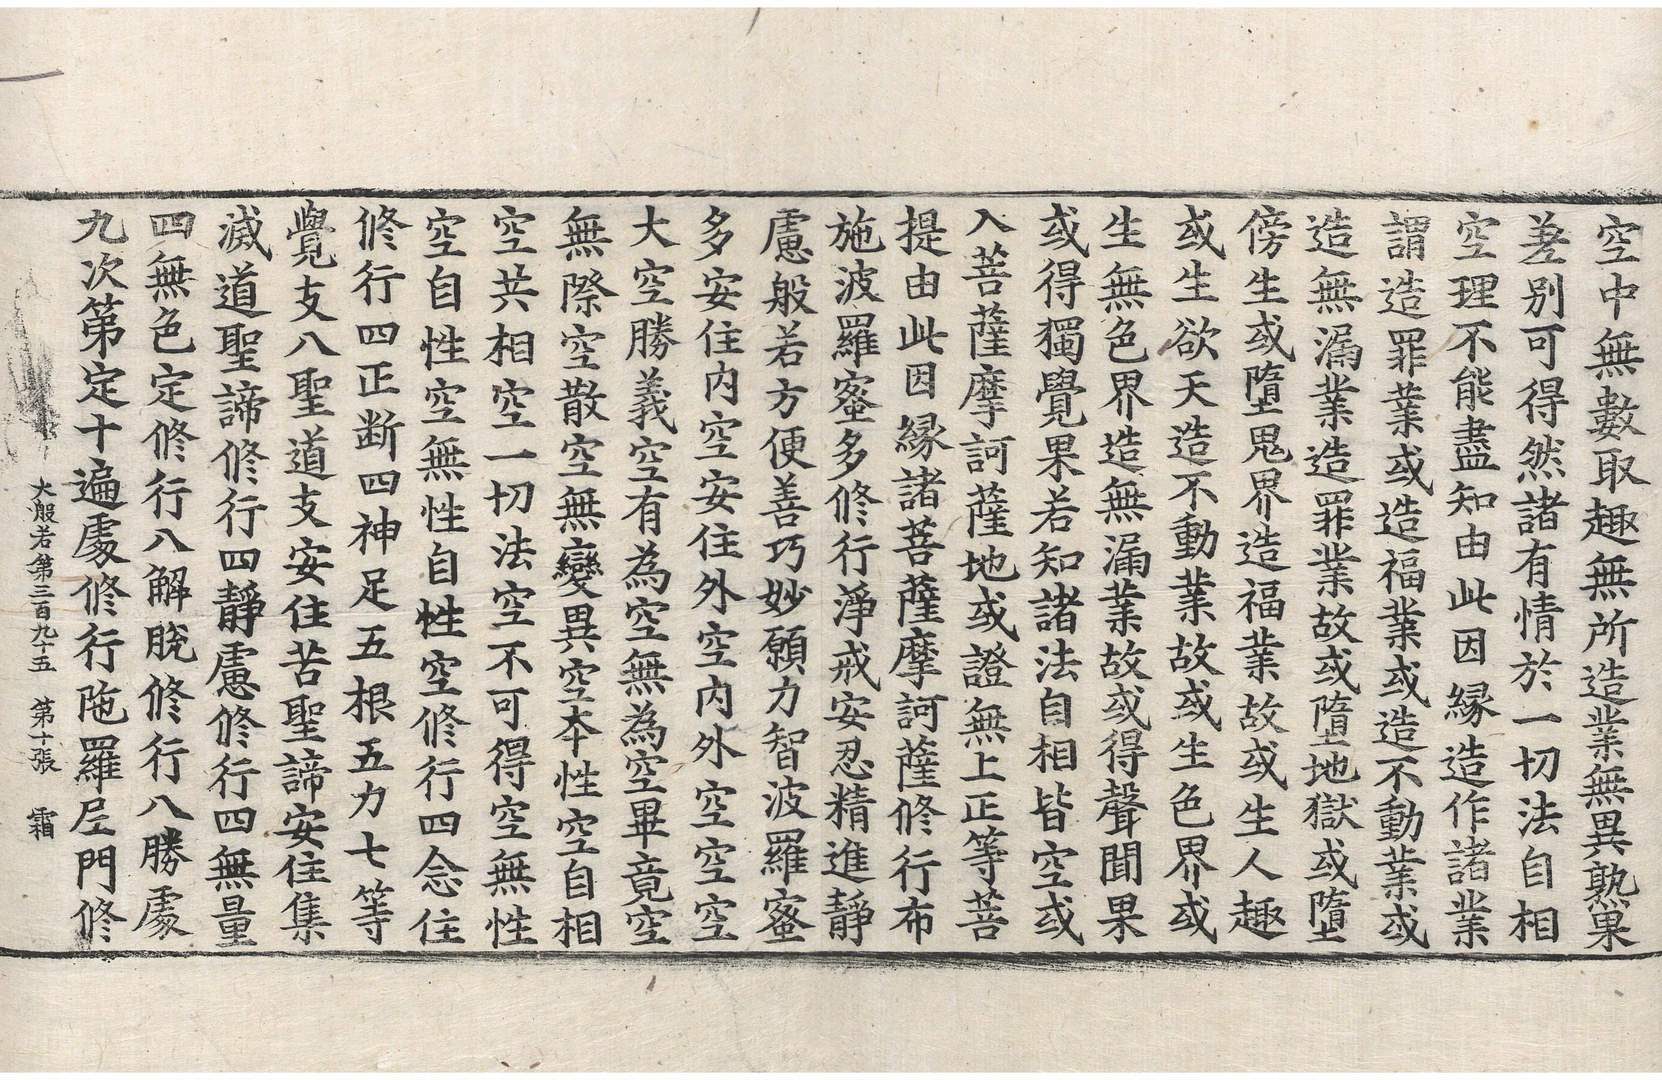 空中無數取趣無所造業無異熟果
差別可得然諸有情於一切法自相
空理不能盡知由此因縁造作諸業
謂造罪業或造福業或造不動業或
造無漏業造罪業故或墮地獄或墮
傍生或墮鬼界造福業故或生人趣
或生欲天造不動業故或生色界或
生無色界造無漏業故或得聲聞果
或得獨覺果若知諸法自相皆空或
入菩薩摩訶薩地或證無上正等菩
提由此因縁諸菩薩摩訶薩修行布
施波羅蜜多修行淨戒安忍精進靜
慮般若方便善巧妙願力智波羅蜜
多安住内空安住外空内外空空空
大空勝義空有為空無為空畢竟空
無際空散空無變異空本性空自相
空共相空一切法空不可得空無性
空自性空無性自性空修行四念住
修行四正断四神足五根五力七等
覺支八聖道支安住苦聖諦安住集
滅道聖諦修行四靜慮修行四無量
四無色定修行八解脫修行八勝處
九次第定十遍處修行陁羅尼門修
大般若第三百九十五　第十張　霜